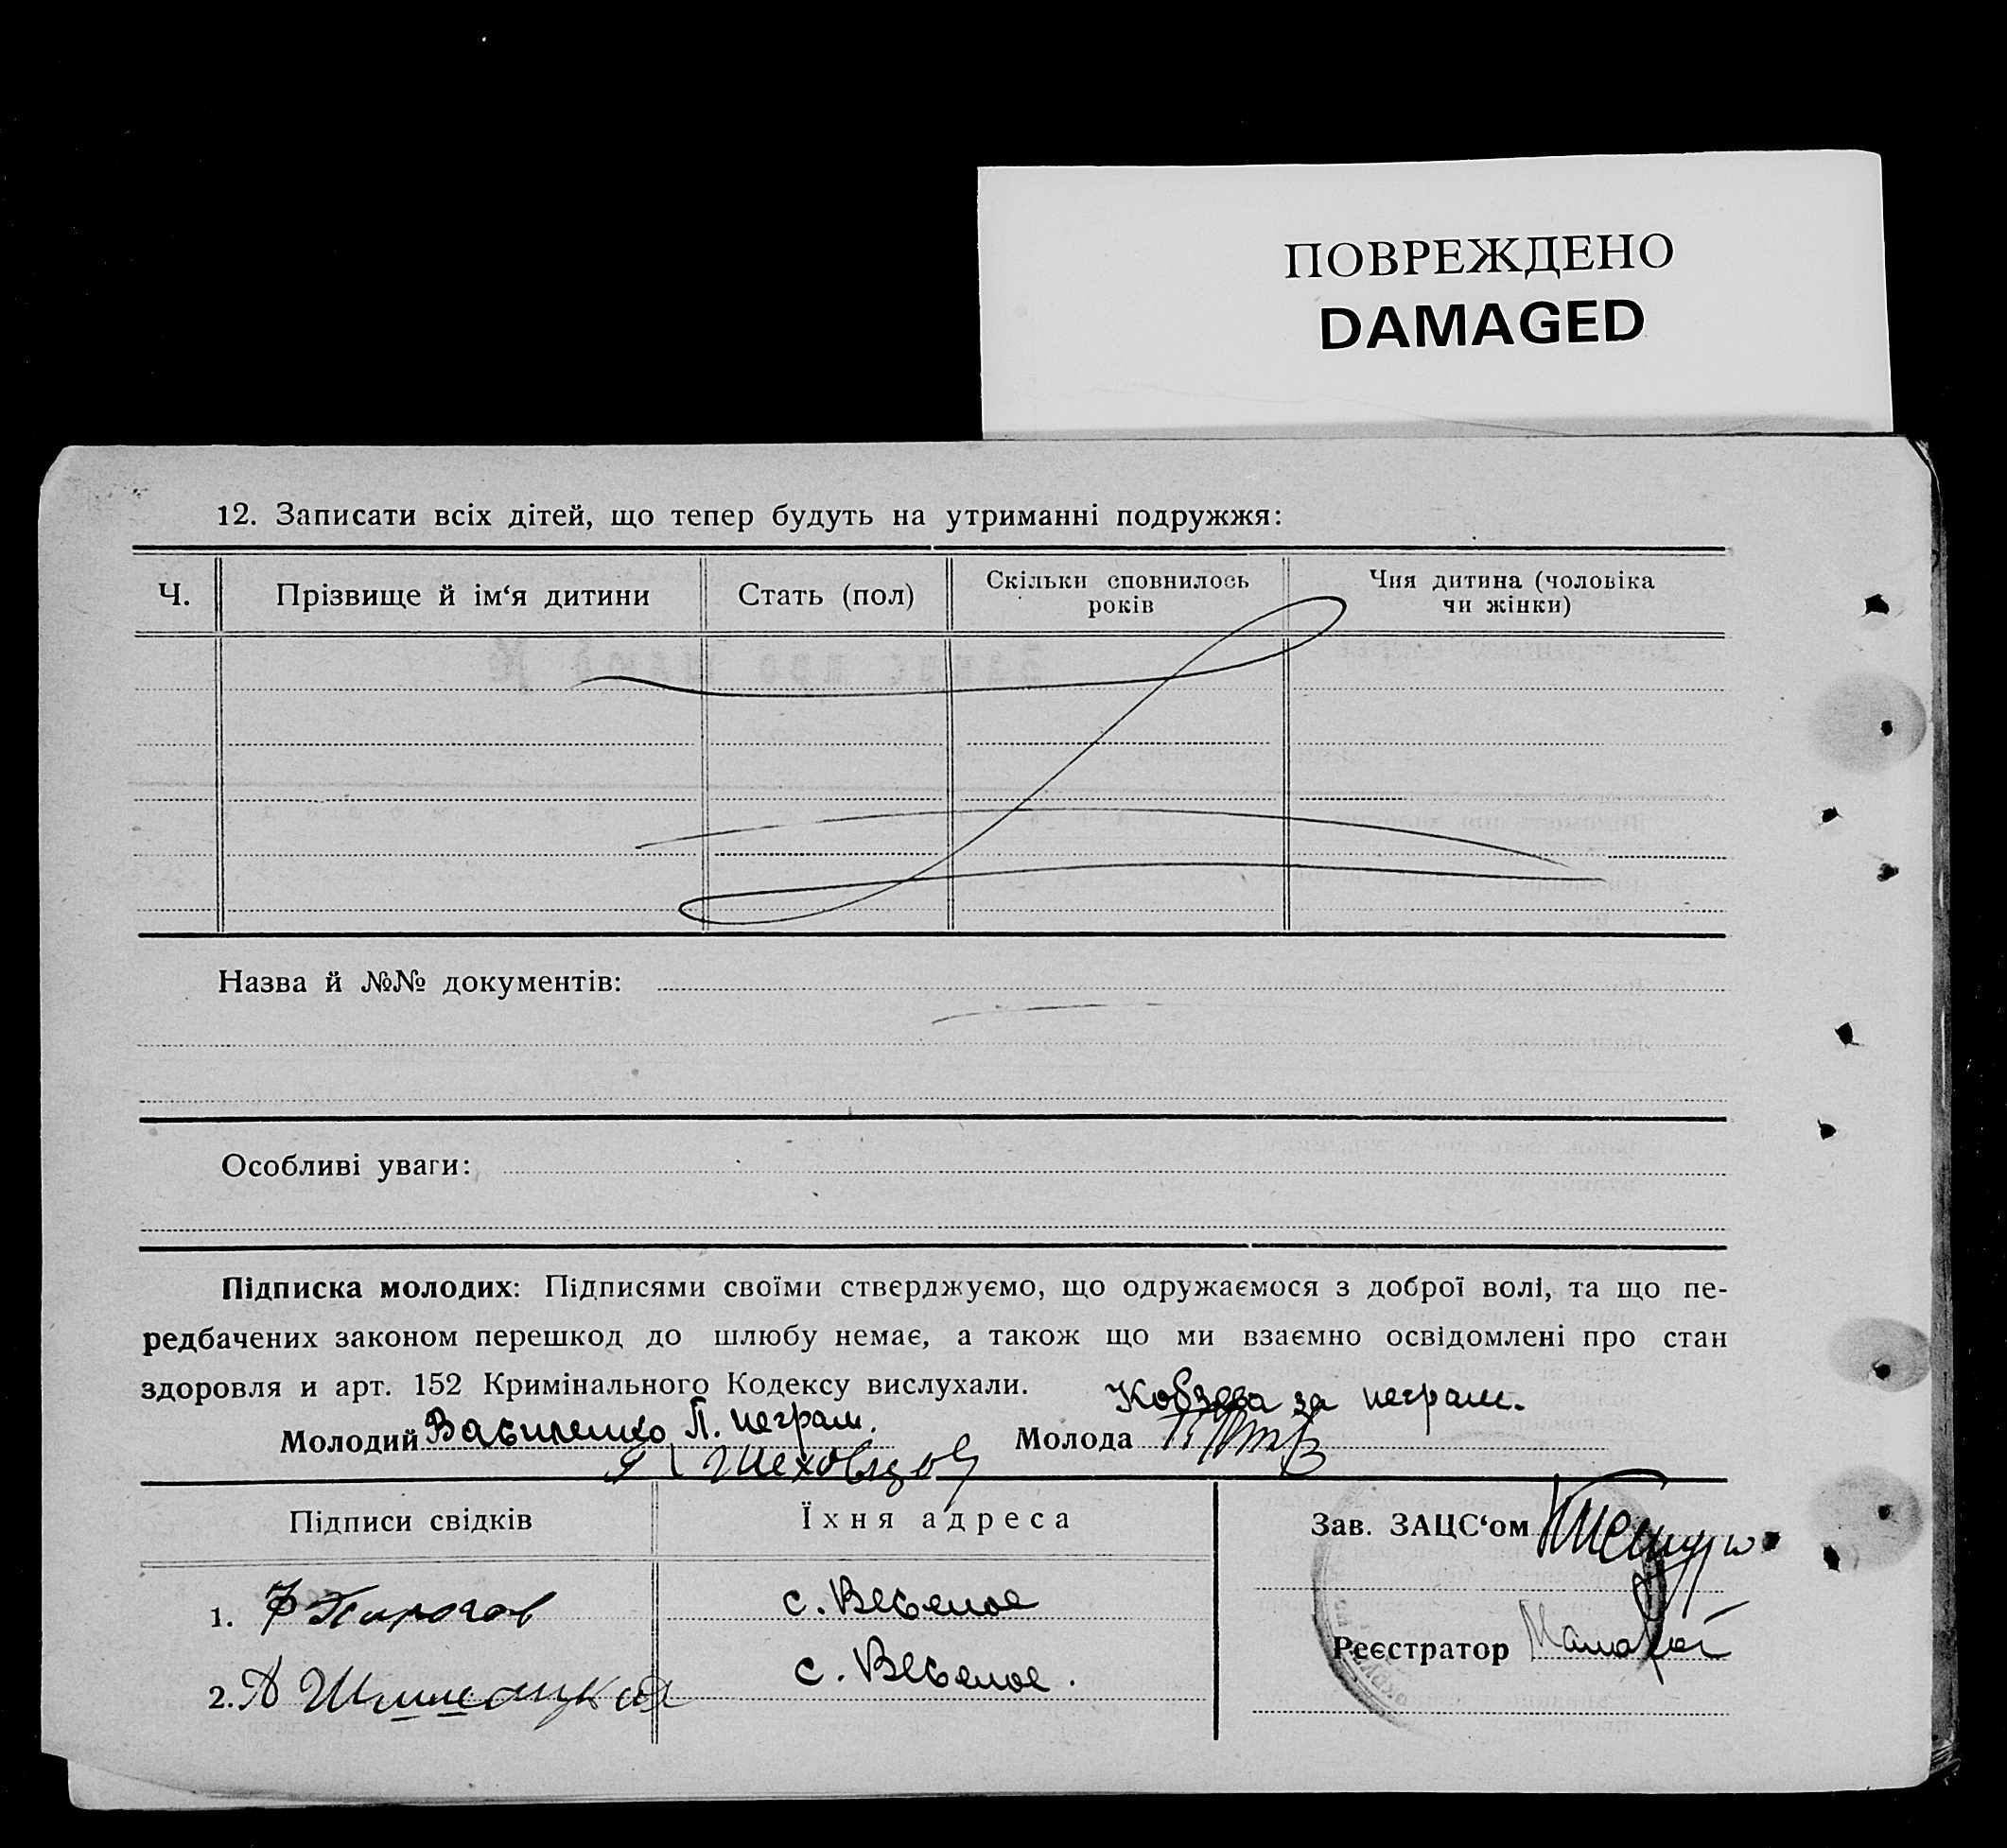 ПОВРЕЖДЕНО
DAMAGED
12. Записати всіх дітей, що тепер будуть на утриманні подружжя:
Ч. Прізвище й ім‘я дитини Стать (пол) Скільки сповнилось років Чия дитина (чоловіка чи жінки)
Назва й №№ документів:
Особливі уваги:
Підписка молодих: Підписями своїми стверджуємо, що одружаємося з доброї волі, та що пе-
редбачених законом перешкод до шлюбу немає, а також що ми взаємно освідомлені про стан
здоровля и арт. 152 Кримінального Кодексу вислухали.
Кобзева за неграм.
Молодий Василенко П. неграм. Молода
Шеховцов
Підписи свідків Їхня адреса Зав. ЗАЦС‘ом
1. Ф Пирогов с. Веселое
Реєстратор
2. А с. Веселое.